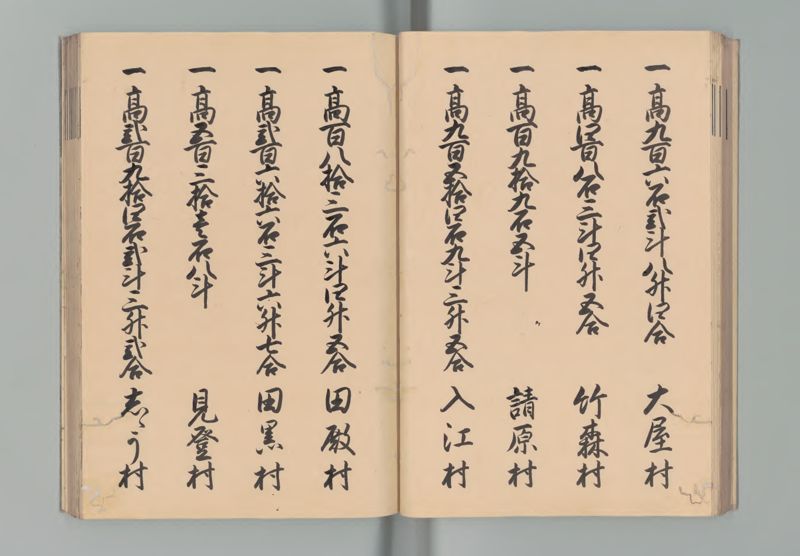 一 高九百六石弐斗八升四合 大屋村
一 高四百八石三斗四升五合 竹森村
一 高百九拾九石五斗 請原村
一 高九百五拾四石九斗三升五合 入江村
一 高百八拾三石六斗四升五合 田殿村
一 高弐百六拾六石三斗六升七合 田黒村
一 高五百三拾壱石八斗 見登村
一 高弐百九拾四石弐斗三升弐合 村